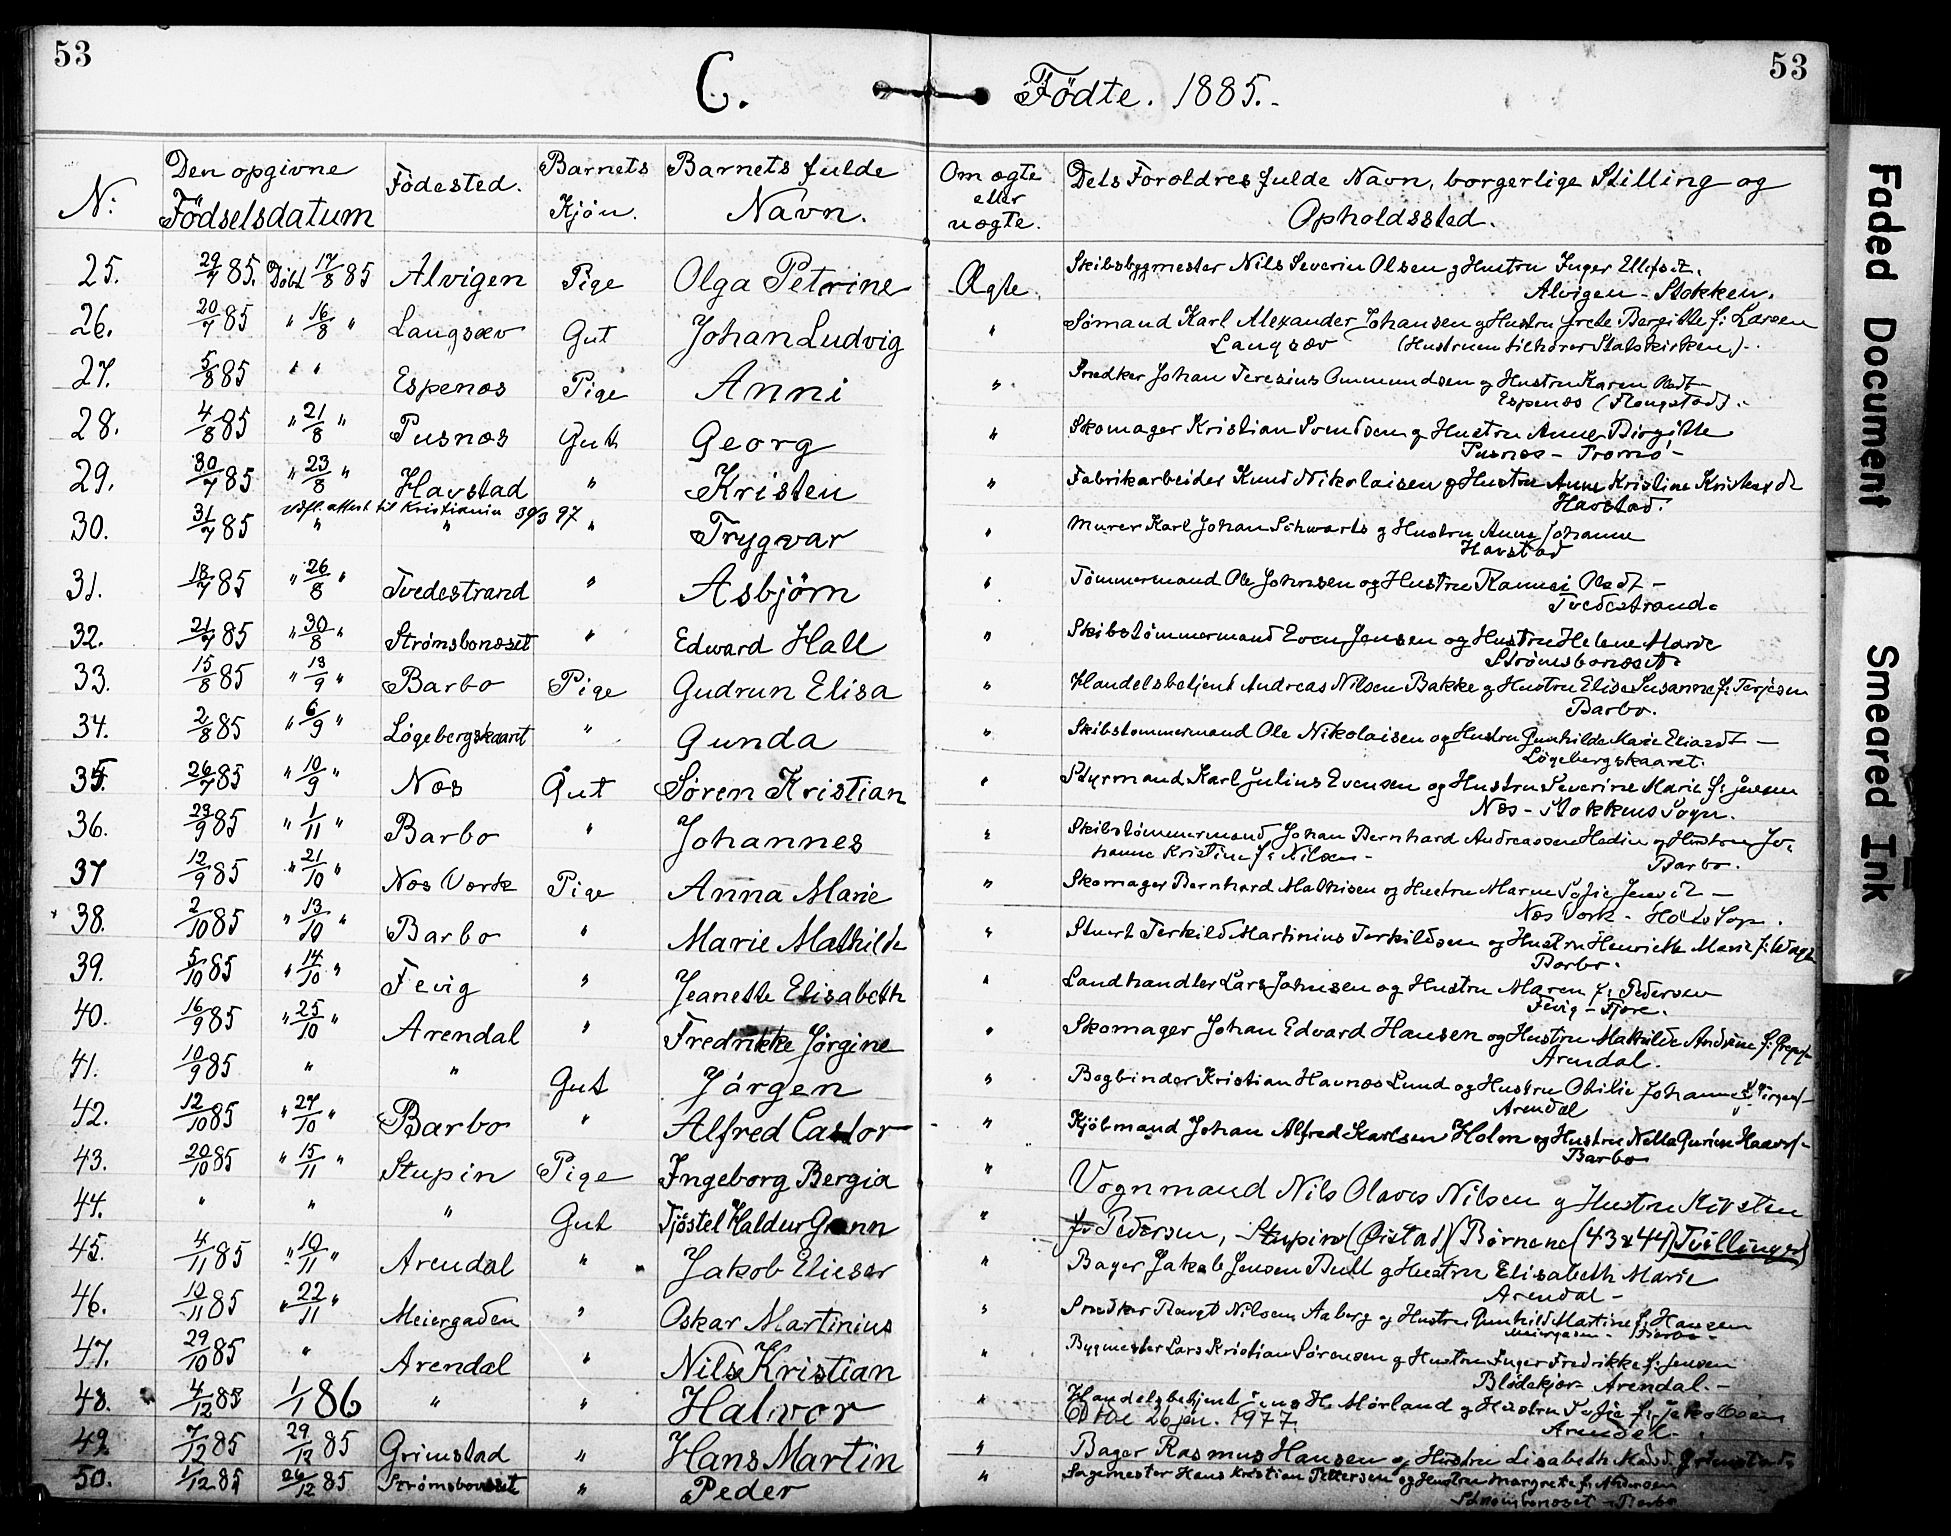 53
53
C.
Födte. 1885.-
N:
Den opgivne
Födselsdatum
Födested.
Barnets
Kjön.
Barnets fulde
Navn.
Om ægte
eller
uægte.
Dets Foroldres fulde Navn, borgerlige Stilling og
Opholdssted.
25. 29/7 85. Döbt 17/8 85 Alvigen Pige Olga Petrine Ægte. Skibsbygmester Nils Severin Olsen og Hustru Inger
Alvigen - Stokken.
26. 20/7 85 " 16/8 " Langsæv Gut Johan Ludvig " Sømand Karl Alexander Johansen og Hustru Grete Bergitte f: Larsen
Langsæv (Hustruen tilhører Statskirken).
27. 5/8 85 " " Espenæs Pige Anni " Snedker Johan Teresius Ommundsen og Hustru Karen
Espenæs (Flougstad).
28. 4/8 85 " 21/8 " Pusnæs Gut Georg " Skomager Kristian Svendsen og Hustru Anne Birgitte
Pusnæs - Tromö -
29. 30/7 85 " 23/8 " Havstad " Kristen " Fabrikarbeider Knud Nikolaisen og Hustru Anne Kristine
Havstad.
attest til Kristiania 30/3 97
30. 31/7 85 " " " Trygvar " Murer Karl Johan Schwarts og Hustru Anne Johanne
Havstad
31. 18/7 85 " 26/8 " Tvedestrand " Asbjörn " Tömmermand Ole Johnsen og Hustru
Tvedestrand.
32. 21/7 85 " 30/8 " Strømsbonæset " Edward Hall " Skibstömmermand Even Jensen og Hustru Helene Marie
Strömsbonæset.
33. 15/8 85 " 13/9 " Barbo Pige Gudrun Elisa " Handelsbetjent Andreas Nilsen Bakke og Hustru Elise Susanne f: Terjesen
Barbo.
34. 2/8 85 " 6/9 " Løgebergskaaret " Gunda " Skibstømmermand Ole Nikolaisen og Hustru Gunhilde Marie
Lögebergskaaret.
35. 26/7 85 " 10/9 " Næs Gut Sören Kristian " Styrmand Karl Julius Evensen og Hustru Severine Marie f: Jensen
Næs - Stokkens Sogn.
36. 23/9 85 " 1/11 " Barbo " Johannes " Skibstömmermand Johan Bernhard Andreassen Hedin og Hustru Jo-
hanne Kristine f: Nilsen -
Barbo.
37 12/9 85 " 21/10 " Næs Værk Pige Anna Marie " Skomager Bernhard Mathisen og Hustru Maren Sofie
Næs Værk - Holts Sogn.
38. 2/10 85 " 13/10 " Barbo " Marie Mathilde " Stuert Terkild Martinius Terkildsen og Hustru Henriette Marie f:
Barbo.
39. 5/10 85 " 14/10 " Fevig " Jeanette Elisabeth " Landhandler Lars Johnsen og Hustru Maren f: Pedersen
Fevig - Fjære.
40. 16/9 85 " 25/10 " Arendal " Fredrikke Jörgine " Skomager Johan Edvard Hansen og Hustru Mathilde Andrine f:
Arendal.
41. 10/9 85 " " Gut Jörgen " Bogbinder Kristian Havnæs Lund og Hustru Otilie Johanne f:
Arendal
42. 12/10 85 " 27/10 " Barbo " Alfred Castor " Kjöbmand Johan Alfred Karlsen Holm og Hustru
Barbo
43. 20/10 85 " 15/11 " Stupin Pige Ingeborg Bergia " Vognmand Nils Olaves Nilsen og Hustru Kirsten
44. " " " Gut Tjöstel Haldur Grann " f: Pedersen, Stupin (Øistad) (Börnene (43 & 44) Tvillinger)
45. 4/11 85 " 10/11 " Arendal " Jakob Elieser " Bager Jakob Jensen Bull og Hustru Elisabeth Marie
Arendal -
46. 10/11 85 " 22/11 " Meiergaden " Oskar Martinius " Snedker Bengt Nilsen Aaberg og Hustru Gunhild Martine f: Hansen
Meiergaden - Barbo -
47. 29/10 85 " Arendal " Nils Kristian " Bygmester Lars Kristian Sörensen og Hustru Inger Fredrikke f: Jensen
Blödekjær Arendal. -
48. 4/12 85 1/1 86 " " Halvor " Handelsbetjent Mörland og Hustru Sofie f: Jakobsen
Död 26 jan. 1977. Arendal.
49. 7/12 85 29/12 85 Grimstad " Hans Martin " Bager Rasmus Hansen og Hustru Lisabeth Grimstad.
50. 1/12 85 26/12 85 Strømsbonæset " Peder " Sagmester Hans Kristian Pettersen og Hustru Margrete f: Andersen
Strömsbonæset - Barbo
Faded Document
Smeared Ink